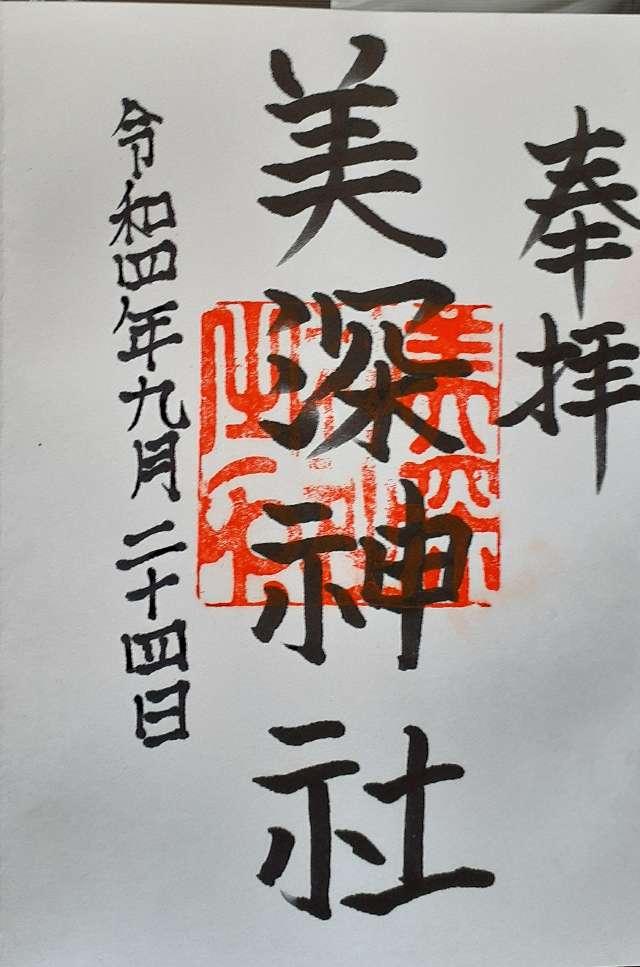 奉拝
美深神社
令和四年九月二十四日